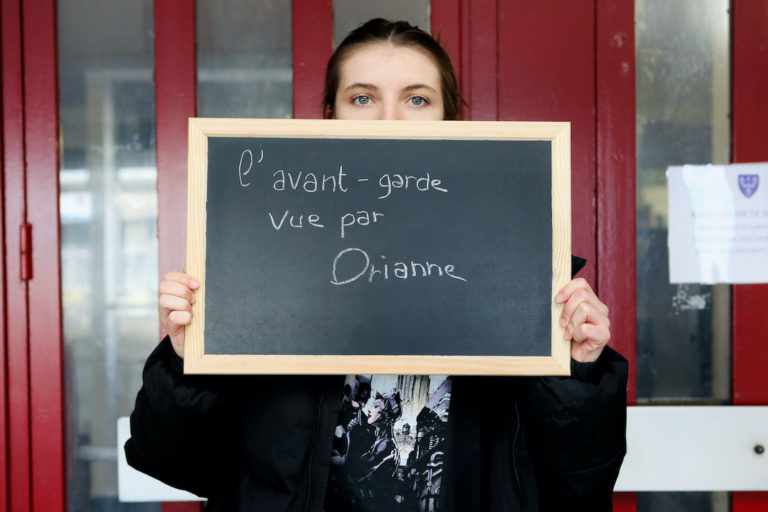 l'avant-garde
vue par
Orianne